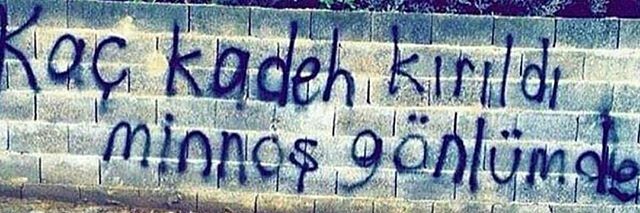 Kaç kadeh kırıldı
minnoş gönlümde